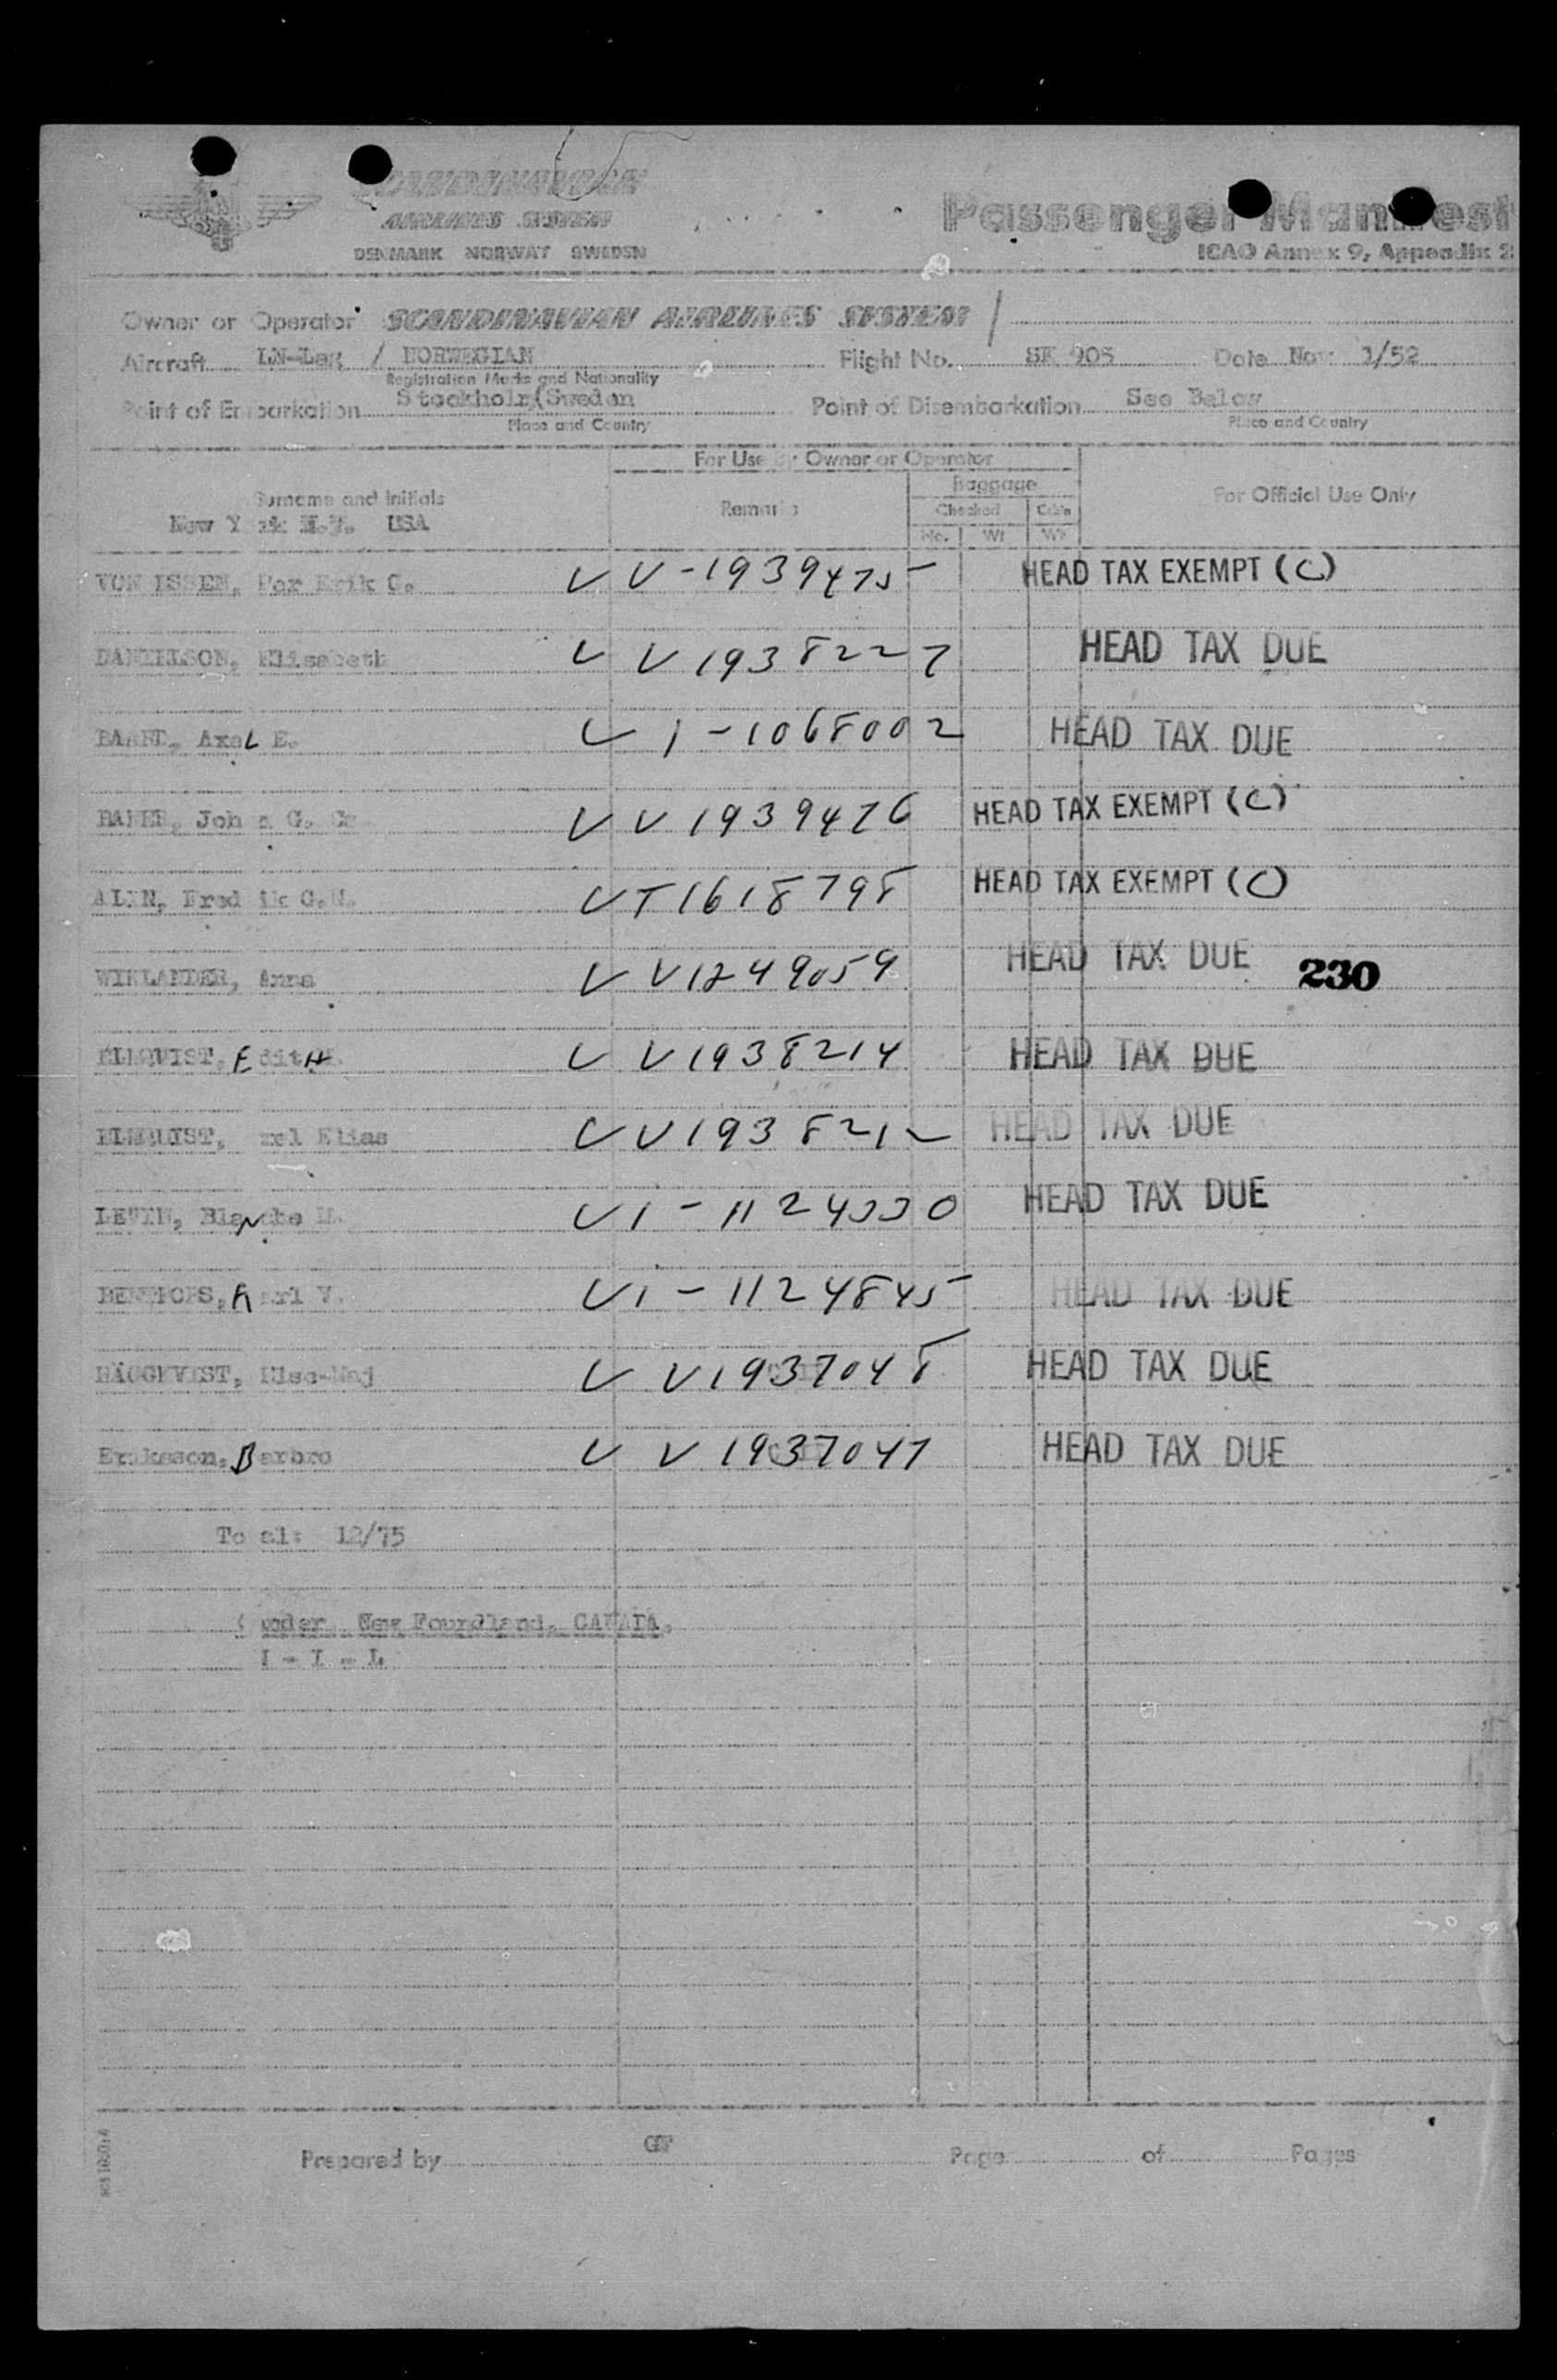 SCANDINAVIAN
AIRLINES SYSTEM
DENMARK NORWAY SWEDEN
Passenger Manifest
ICAO Annex 9, Appendix 2
Owner or Operator SCANDINAVIAN AIRLINES SYSTEM /
Aircraft LN-Lag / NORWEGIAN Flight No. SK 905 Date Nov 1/52
Registration Marks and Nationality
Point of Embarkation Stockholm/Sweden Point of Disembarkation See Below
Place and Country Place and Country
For Use By Owner or Operator
Surname and Initials Remarks Baggage For Official Use Only
Checked Cabin
No. Wt Wt
New Y rk N.Y. USA
VON ISSEN, Per Erik G. V V-1939475 HEAD TAX EXEMPT (C)
DANIELSON, Elisabeth V V 1938227 HEAD TAX DUE
Axel E. V 1-1068002 HEAD TAX DUE
Joh n G. V V 1939476 HEAD TAX EXEMPT (C)
ALIN, Fred ik G. V T 1618798 HEAD TAX EXEMPT (C)
WIKLANDER, Anna V V 1249059 HEAD TAX DUE 230
ELMQUIST, Edith V V 1938214 HEAD TAX DUE
ELMQUIST, xel Elias V V 1938212 HEAD TAX DUE
LEVIN, Blanche M. V 1-1124330 HEAD TAX DUE
arl V. V 1-1124845 HEAD TAX DUE
HÄGGKVIST, Else-Maj V V 1937048 HEAD TAX DUE
Eriksson, Barbro V V 1937047 HEAD TAX DUE
To al: 12/75
nder New Foundland, CANADA.
I - L
Prepared by GP Page of Pages